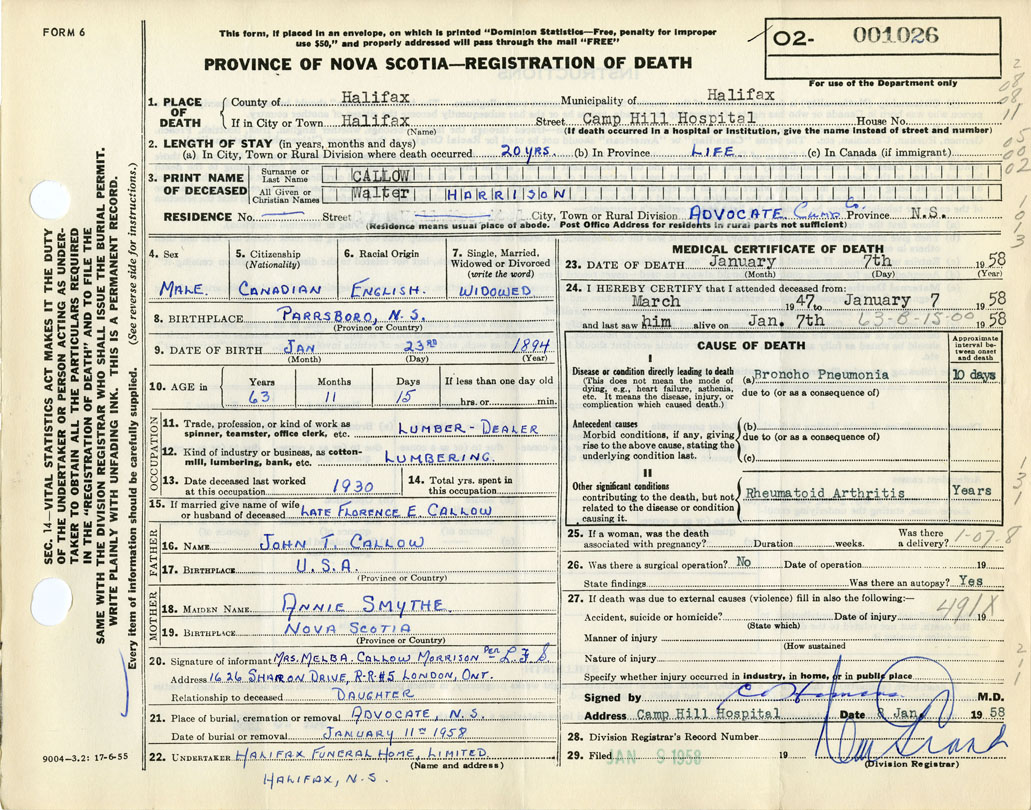 FORM 6
This form, if placed in an envelope, on which is printed "Dominion Statistics—Free, penalty for improper
use $50," and properly addressed will pass through the mail "FREE"
PROVINCE OF NOVA SCOTIA—REGISTRATION OF DEATH
02- 001026
For use of the Department only
SEC. 14—VITAL STATISTICS ACT MAKES IT THE DUTY
OF THE UNDERTAKER OR PERSON ACTING AS UNDER-
TAKER TO OBTAIN ALL THE PARTICULARS REQUIRED
IN THE "REGISTRATION OF DEATH" AND TO FILE THE
SAME WITH THE DIVISION REGISTRAR WHO SHALL ISSUE THE BURIAL PERMIT.
WRITE PLAINLY WITH UNFADING INK. THIS IS A PERMANENT RECORD.
Every item of information should be carefully supplied. (See reverse side for instructions.)
1. PLACE OF DEATH
County of Halifax Municipality of Halifax
If in City or Town Halifax Street Camp Hill Hospital House No.
(Name) (If death occurred in a hospital or institution, give the name instead of street and number)
2. LENGTH OF STAY (in years, months and days)
(a) In City, Town or Rural Division where death occurred 20 YRS. (b) In Province LIFE. (c) In Canada (if immigrant)
3. PRINT NAME OF DECEASED
Surname or Last Name CALLOW
All Given or Christian Names Walter HARRISON
RESIDENCE No. Street City, Town or Rural Division ADVOCATE CUMB Co. Province N.S.
(Residence means usual place of abode. Post Office Address for residents in rural parts not sufficient)
4. Sex
MALE.
5. Citizenship
(Nationality)
CANADIAN
6. Racial Origin
ENGLISH.
7. Single, Married,
Widowed or Divorced
(write the word)
WIDOWED
8. BIRTHPLACE PARRSBORO, N.S.
(Province or Country)
9. DATE OF BIRTH JAN 23RD 1894
(Month) (Day) (Year)
10. AGE in Years Months Days If less than one day old
63 11 15 hrs. or min.
OCCUPATION
11. Trade, profession, or kind of work as
spinner, teamster, office clerk, etc. LUMBER-DEALER
12. Kind of industry or business, as cotton-
mill, lumbering, bank, etc. LUMBERING.
13. Date deceased last worked
at this occupation 1930
14. Total yrs. spent in
this occupation
15. If married give name of wife
or husband of deceased LATE FLORENCE E. CALLOW
FATHER
16. NAME JOHN T. CALLOW
17. BIRTHPLACE U.S.A.
(Province or Country)
MOTHER
18. MAIDEN NAME ANNIE SMYTHE.
19. BIRTHPLACE NOVA SCOTIA
(Province or Country)
20. Signature of informant MRS. MELBA CALLOW MORRISON Per L.F.S
Address 1626 SHARON DRIVE, R.R#5 LONDON, ONT.
Relationship to deceased DAUGHTER
21. Place of burial, cremation or removal ADVOCATE, N.S.
Date of burial or removal JANUARY 11TH 1958
22. UNDERTAKER HALIFAX FUNERAL HOME, LIMITED
(Name and address)
HALIFAX, N.S.
9004-3.2: 17-6-55
MEDICAL CERTIFICATE OF DEATH
23. DATE OF DEATH January 7th 1958
(Month) (Day) (Year)
24. I HEREBY CERTIFY that I attended deceased from:
March 1947 to January 7 1958
and last saw him alive on Jan. 7th 63-B-15-00 1958
CAUSE OF DEATH
Approximate interval between onset and death
I
Disease or condition directly leading to death
(This does not mean the mode of
dying, e.g., heart failure, asthenia,
etc. It means the disease, injury, or
complication which caused death.)
(a) Broncho Pneumonia 10 days
due to (or as a consequence of)
Antecedent causes
Morbid conditions, if any, giving
rise to the above cause, stating the
underlying condition last.
(b)
due to (or as a consequence of)
(c)
II
Other significant conditions
contributing to the death, but not
related to the disease or condition
causing it.
Rheumatoid Arthritis Years
25. If a woman, was the death
associated with pregnancy? Duration weeks. Was there
a delivery? 1-07.8
26. Was there a surgical operation? No Date of operation 19
State findings Was there an autopsy? Yes
27. If death was due to external causes (violence) fill in also the following:—
Accident, suicide or homicide? Date of injury 19
(State which)
491X
Manner of injury
(How sustained
Nature of injury
Specify whether injury occurred in industry, in home, or in public place
Signed by M.D.
Address Camp Hill Hospital Date 8 Jan. 1958
28. Division Registrar's Record Number
29. Filed JAN 9 1958 19
(Division Registrar)